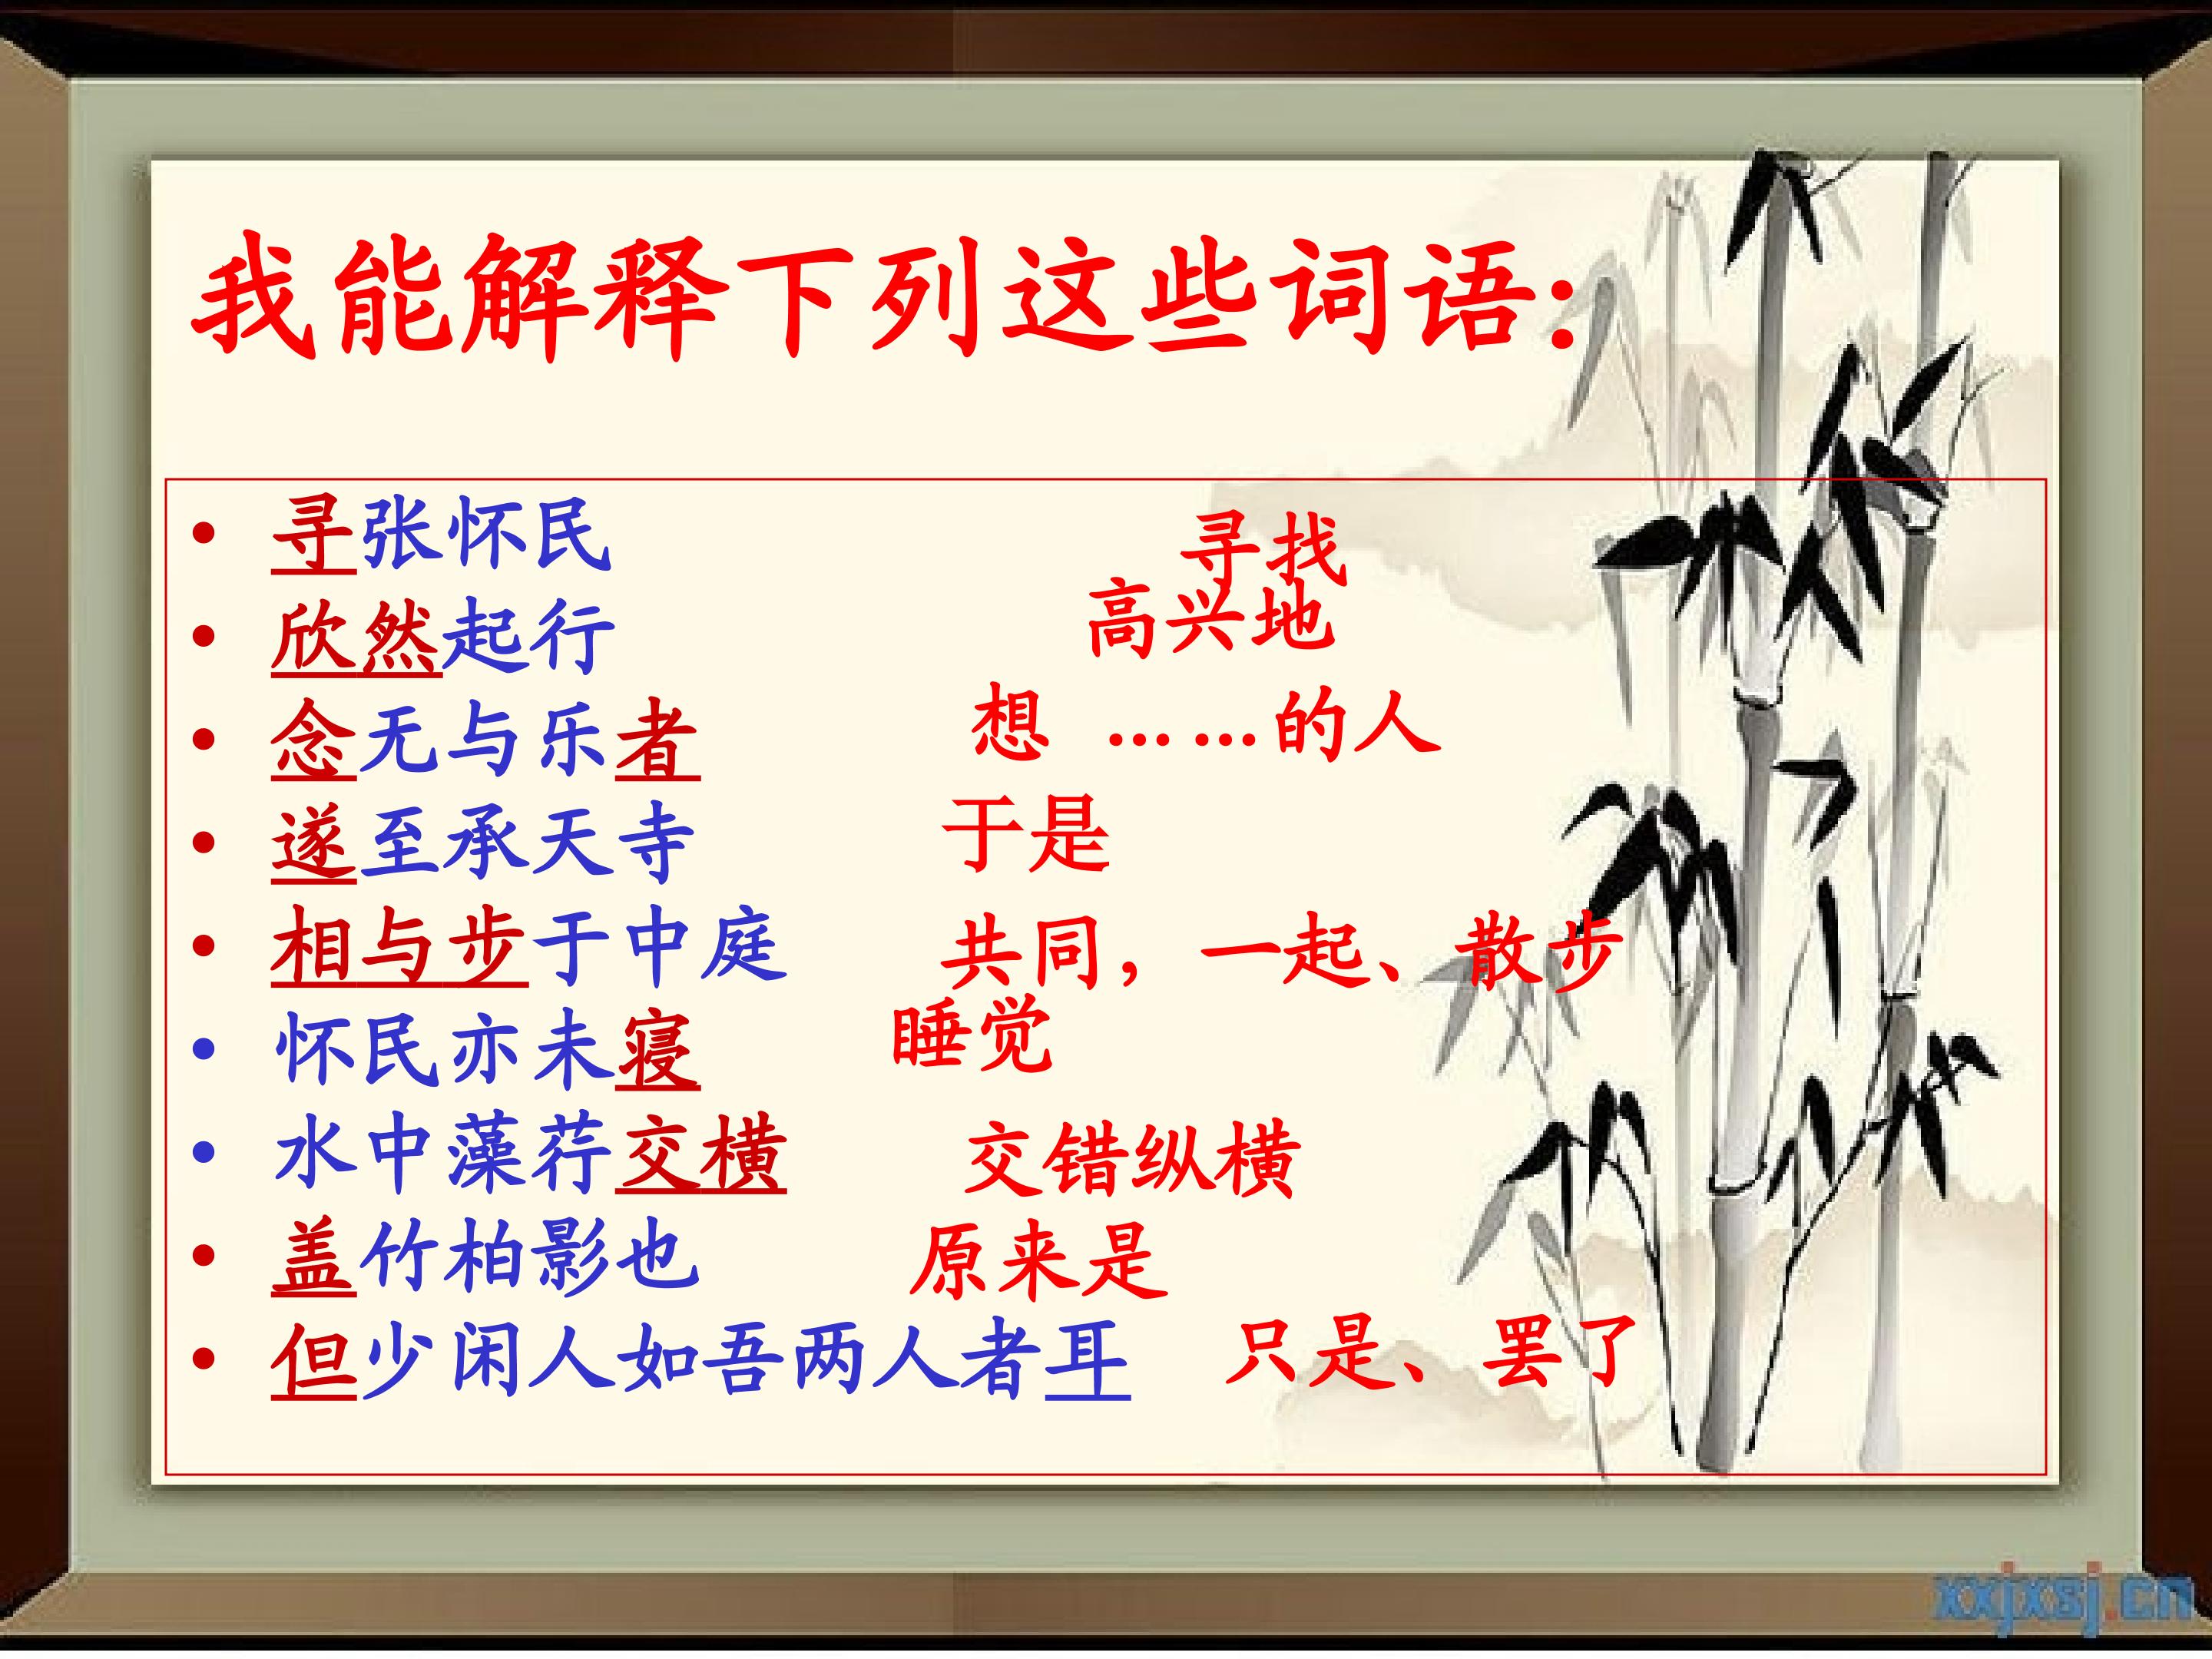 我能解释下列这些词语:
• 寻张怀民 寻找
• 欣然起行 高兴地
• 念无与乐者 想 ……的人
• 遂至承天寺 于是
• 相与步于中庭 共同，一起、散步
• 怀民亦未寝 睡觉
• 水中藻荇交横 交错纵横
• 盖竹柏影也 原来是
• 但少闲人如吾两人者耳 只是、罢了
xxjxsj.cn